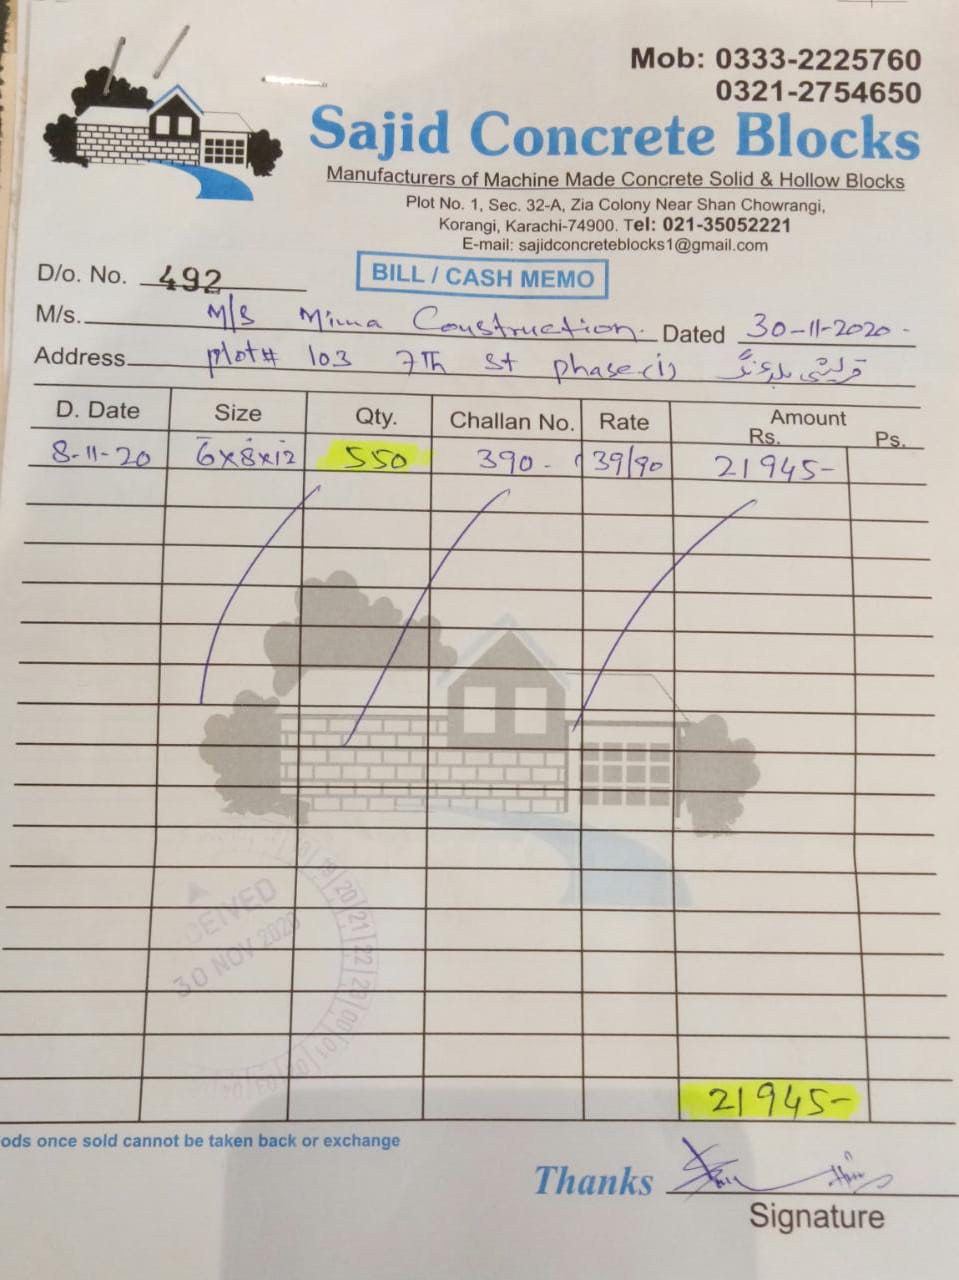 Mob: 0333-2225760
0321-2754650
Sajid Concrete Blocks
Manufacturers of Machine Made Concrete Solid & Hollow Blocks
Plot No. 1, Sec. 32-A, Zia Colony Near Shan Chowrangi,
Korangi, Karachi-74900. Tel: 021-35052221
E-mail: sajidconcreteblocks1@gmail.com
D/o. No. 492
BILL / CASH MEMO
M/s. M/S Mima Construction. Dated 30-11-2020-
Address plot# 103 7Th st phase (1)
D. Date Size Qty. Challan No. Rate Amount Rs. Ps.
8-11-20 6x8x12 550 390- 39/90 21945-
CEIVED
30 NOV 2020
21945-
ods once sold cannot be taken back or exchange
Thanks
Signature